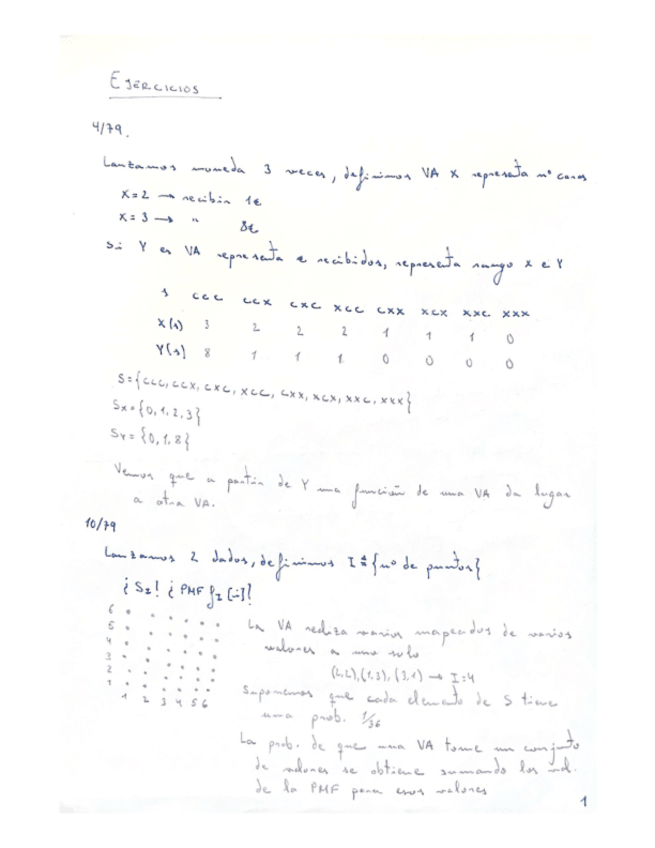 EJERCICIOS
4/79.
Lanzamos moneda 3 veces, definimos VA X representa nº caras
X=2 → recibir 1€
X=3 → " 8€
Si Y es VA representa € recibidos, representa rango X e Y
s ccc ccx cxc xcc cxx xcx xxc xxx
X(s) 3 2 2 2 1 1 1 0
Y(s) 8 1 1 1 0 0 0 0
S={ccc, ccx, cxc, xcc, cxx, xcx, xxc, xxx}
Sx={0,1,2,3}
Sy={0,1,8}
Vemos que a partir de Y una función de una VA da lugar
a otra VA.
10/79
Lanzamos 2 dados, definimos I ≜ {nº de puntos}
¿SI? ¿PMF fI[i]?
6
5
4
3
2
1
1 2 3 4 5 6
La VA realiza varios mapeados de varios
valores a uno solo
(2,2),(1,3),(3,1) → I=4
Suponemos que cada elemento de S tiene
una prob. 1/36
La prob. de que una VA tome un conjunto
de valores se obtiene sumando los val.
de la PMF para esos valores
1